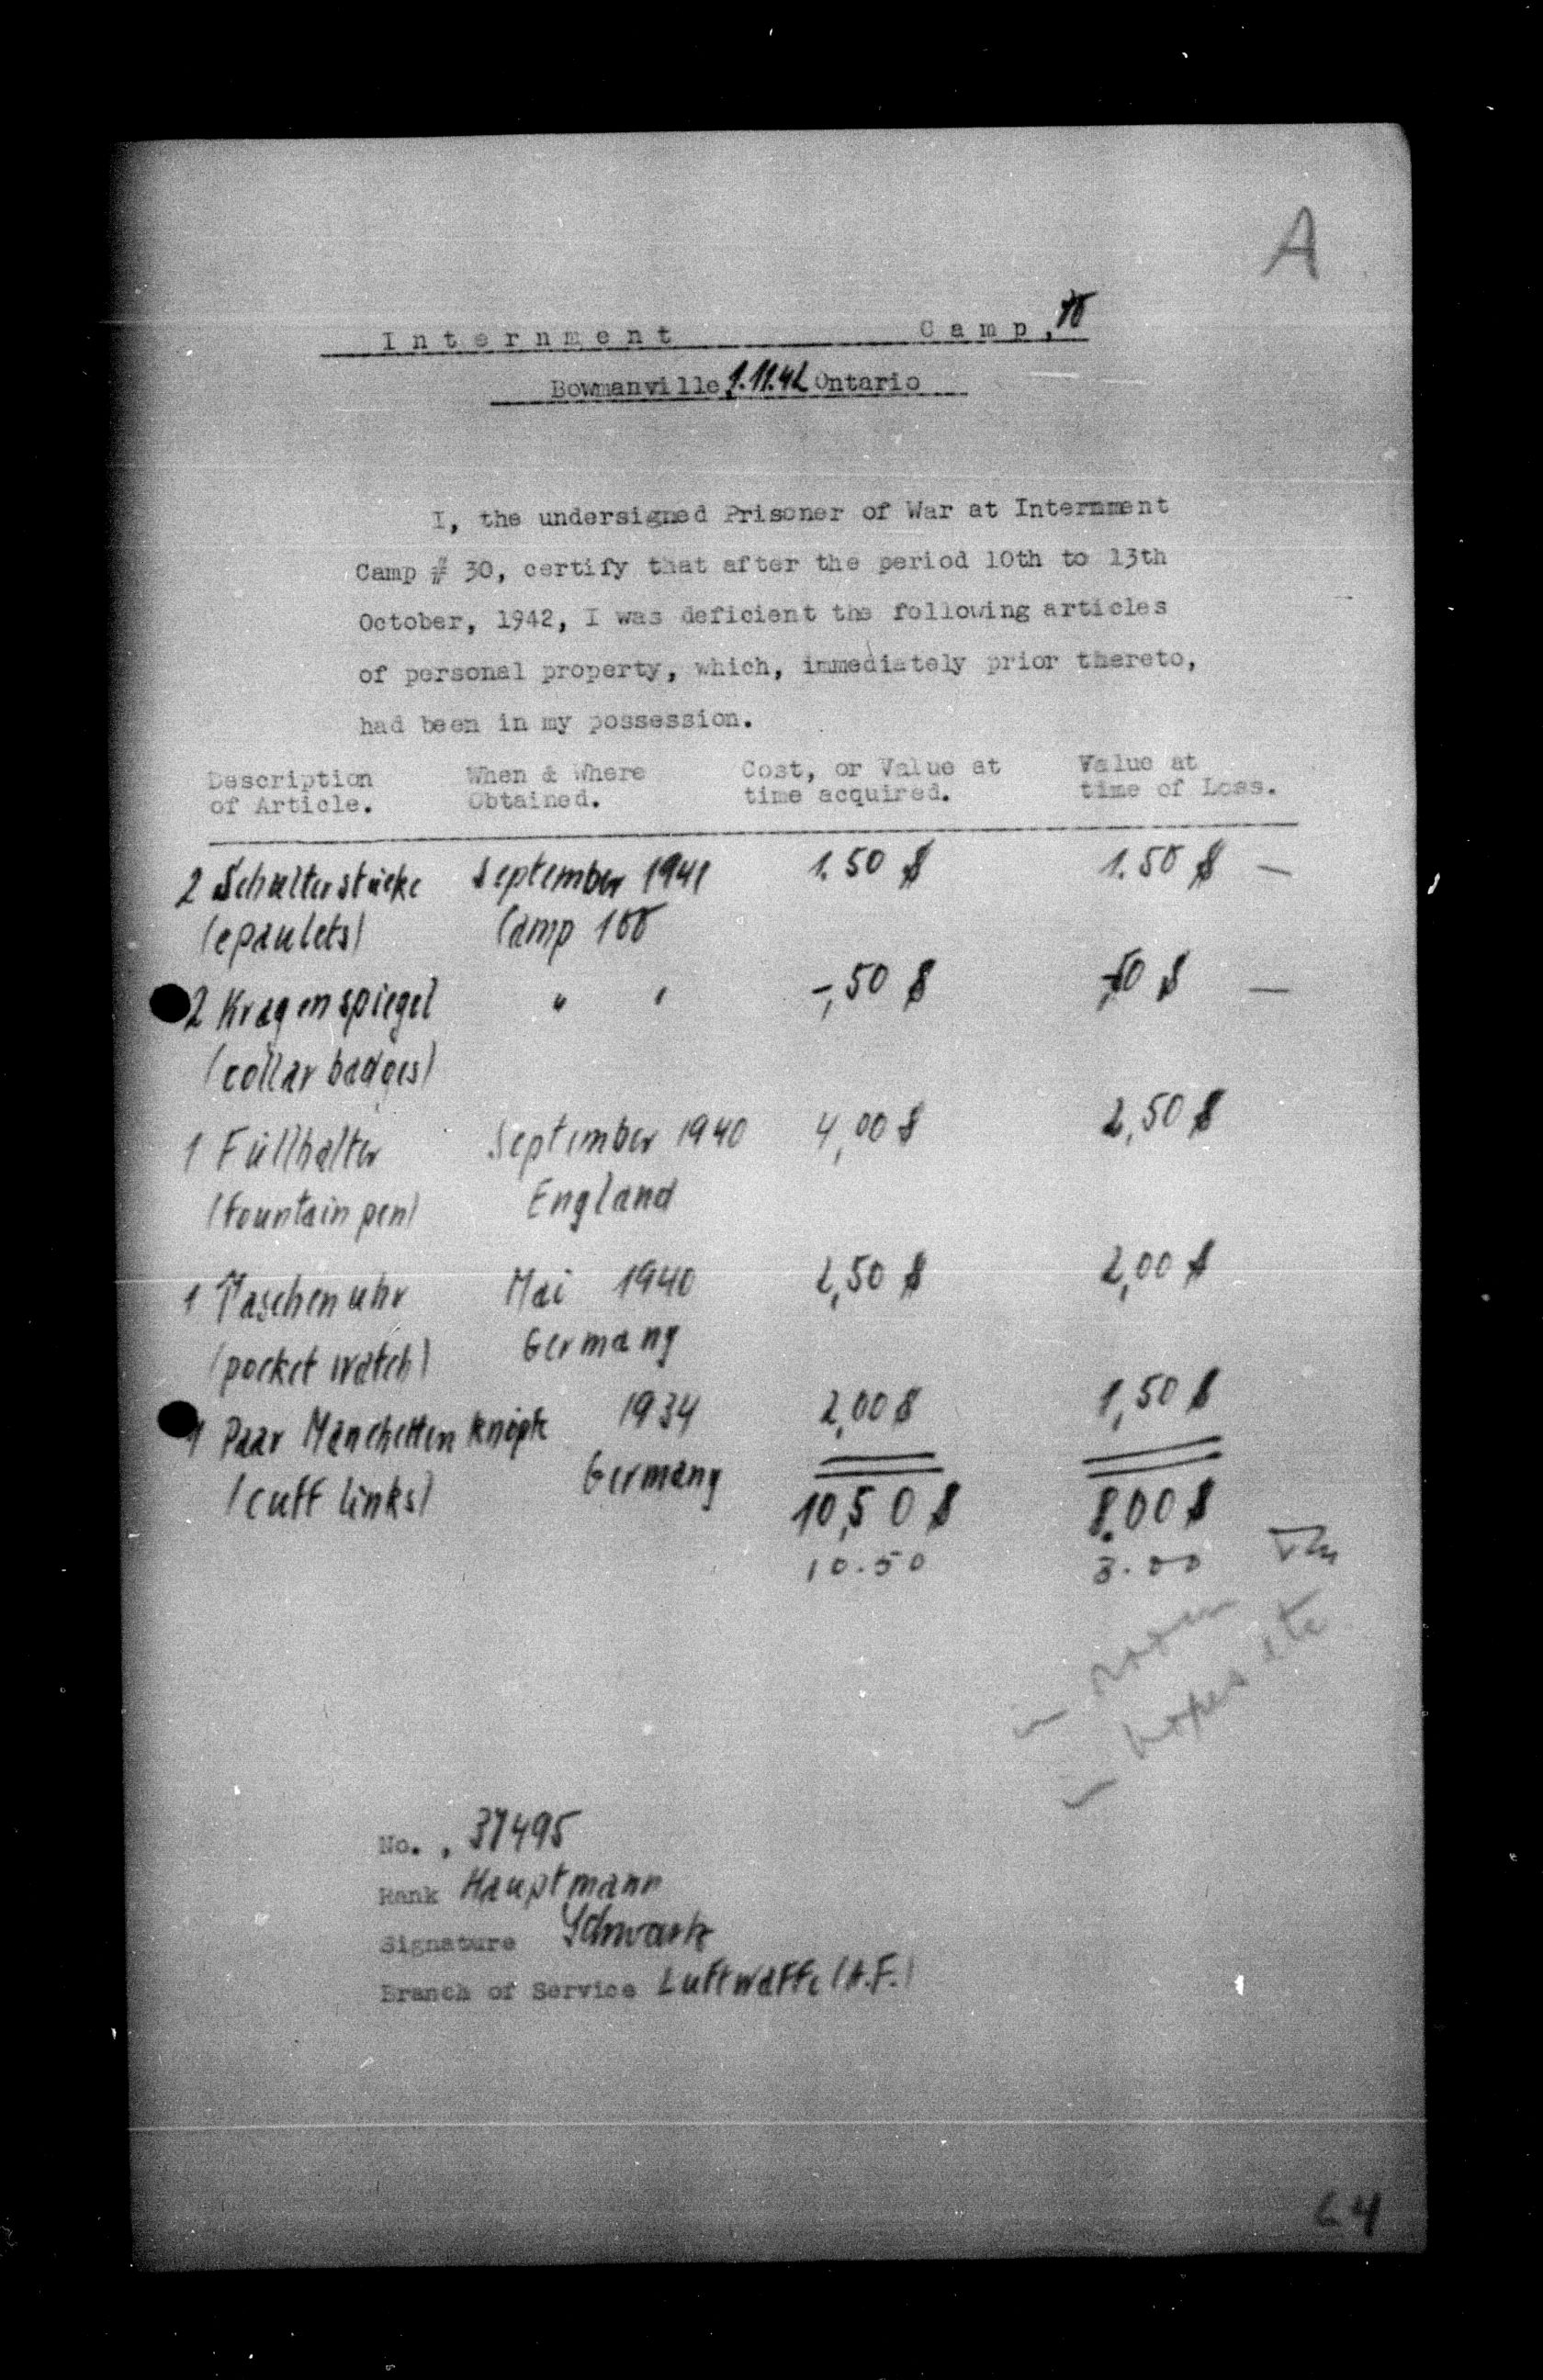 A
Internment Camp,
Bowmanville, 1.11.42 Ontario
I, the undersigned Prisoner of War at Internment
Camp # 30, certify that after the period 10th to 13th
October, 1942, I was deficient the following articles
of personal property, which, immediately prior thereto,
had been in my possession.
Description When & Where Cost, or Value at Value at
of Article. Obtained. time acquired. time of Loss.
2 Schulterstücke September 1941 1.50 $ 1.50 $ —
(epaulets) Camp 100
2 Kragenspiegel " " -,50 $ -,50 $ —
(collar badges)
1 Füllhalter September 1940 4,00 $ 2,50 $
(fountain pen) England
1 Taschenuhr Mai 1940 2,50 $ 2,00 $
(pocket watch) Germany
1 Paar Manchettenknöpfe 1934 2,00 $ 1,50 $
(cuff links) Germany
10,50 $ 8.00 $
10.50 8.00
in room
in boxes etc
No. , 37495
Rank Hauptmann
Signature Schwartz
Branch of Service Luftwaffe (A.F.)
64